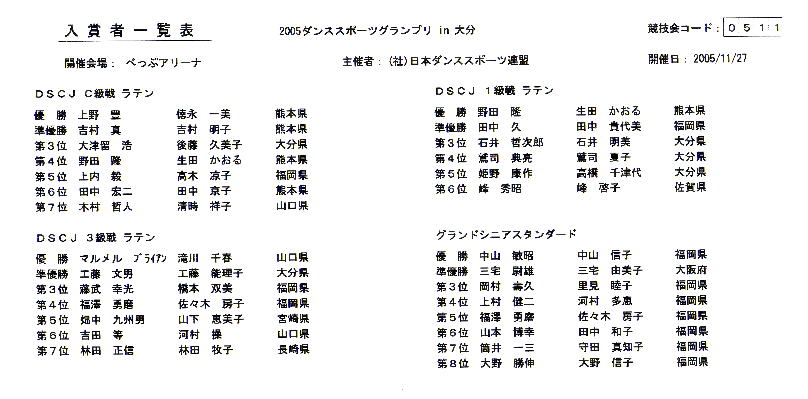 入賞者一覧表
2005ダンススポーツグランプリ in 大分
競技会コード： ０５１１
開催会場： べっぷアリーナ
主催者：(社)日本ダンススポーツ連盟
開催日：2005/11/27
ＤＳＣＪ Ｃ級戦 ラテン
優　勝 上野　豊 徳永　一美 熊本県
準優勝 吉村　真 吉村　明子 熊本県
第３位 大津留　浩 後藤　久美子 大分県
第４位 野田　隆 生田　かおる 熊本県
第５位 上内　毅 高木　凉子 福岡県
第６位 田中　宏二 田中　京子 熊本県
第７位 木村　哲人 清時　祥子 山口県
ＤＳＣＪ １級戦 ラテン
優　勝 野田　隆 生田　かおる 熊本県
準優勝 田中　久 田中　貴代美 福岡県
第３位 石井　哲次郎 石井　明美 大分県
第４位 鷲司　典亮 鷲司　夏子 大分県
第５位 姫野　康作 高橋　千津代 大分県
第６位 峰　秀昭 峰　啓子 佐賀県
ＤＳＣＪ ３級戦 ラテン
優　勝 マルメル　ブライアン 滝川　千春 山口県
準優勝 工藤　文男 工藤　能理子 大分県
第３位 藤武　幸光 橋本　双美 福岡県
第４位 福澤　勇磨 佐々木　房子 福岡県
第５位 畑中　九州男 山下　恵美子 宮崎県
第６位 吉田　等 河村　操 山口県
第７位 林田　正信 林田　牧子 長崎県
グランドシニアスタンダード
優　勝 中山　敏昭 中山　信子 福岡県
準優勝 三宅　尉雄 三宅　由美子 大阪府
第３位 岡村　壽久 里見　睦子 福岡県
第４位 上村　健二 河村　多恵 福岡県
第５位 福澤　勇磨 佐々木　房子 福岡県
第６位 山本　博幸 田中　和子 福岡県
第７位 筒井　一三 守田　真知子 福岡県
第８位 大野　勝伸 大野　信子 福岡県